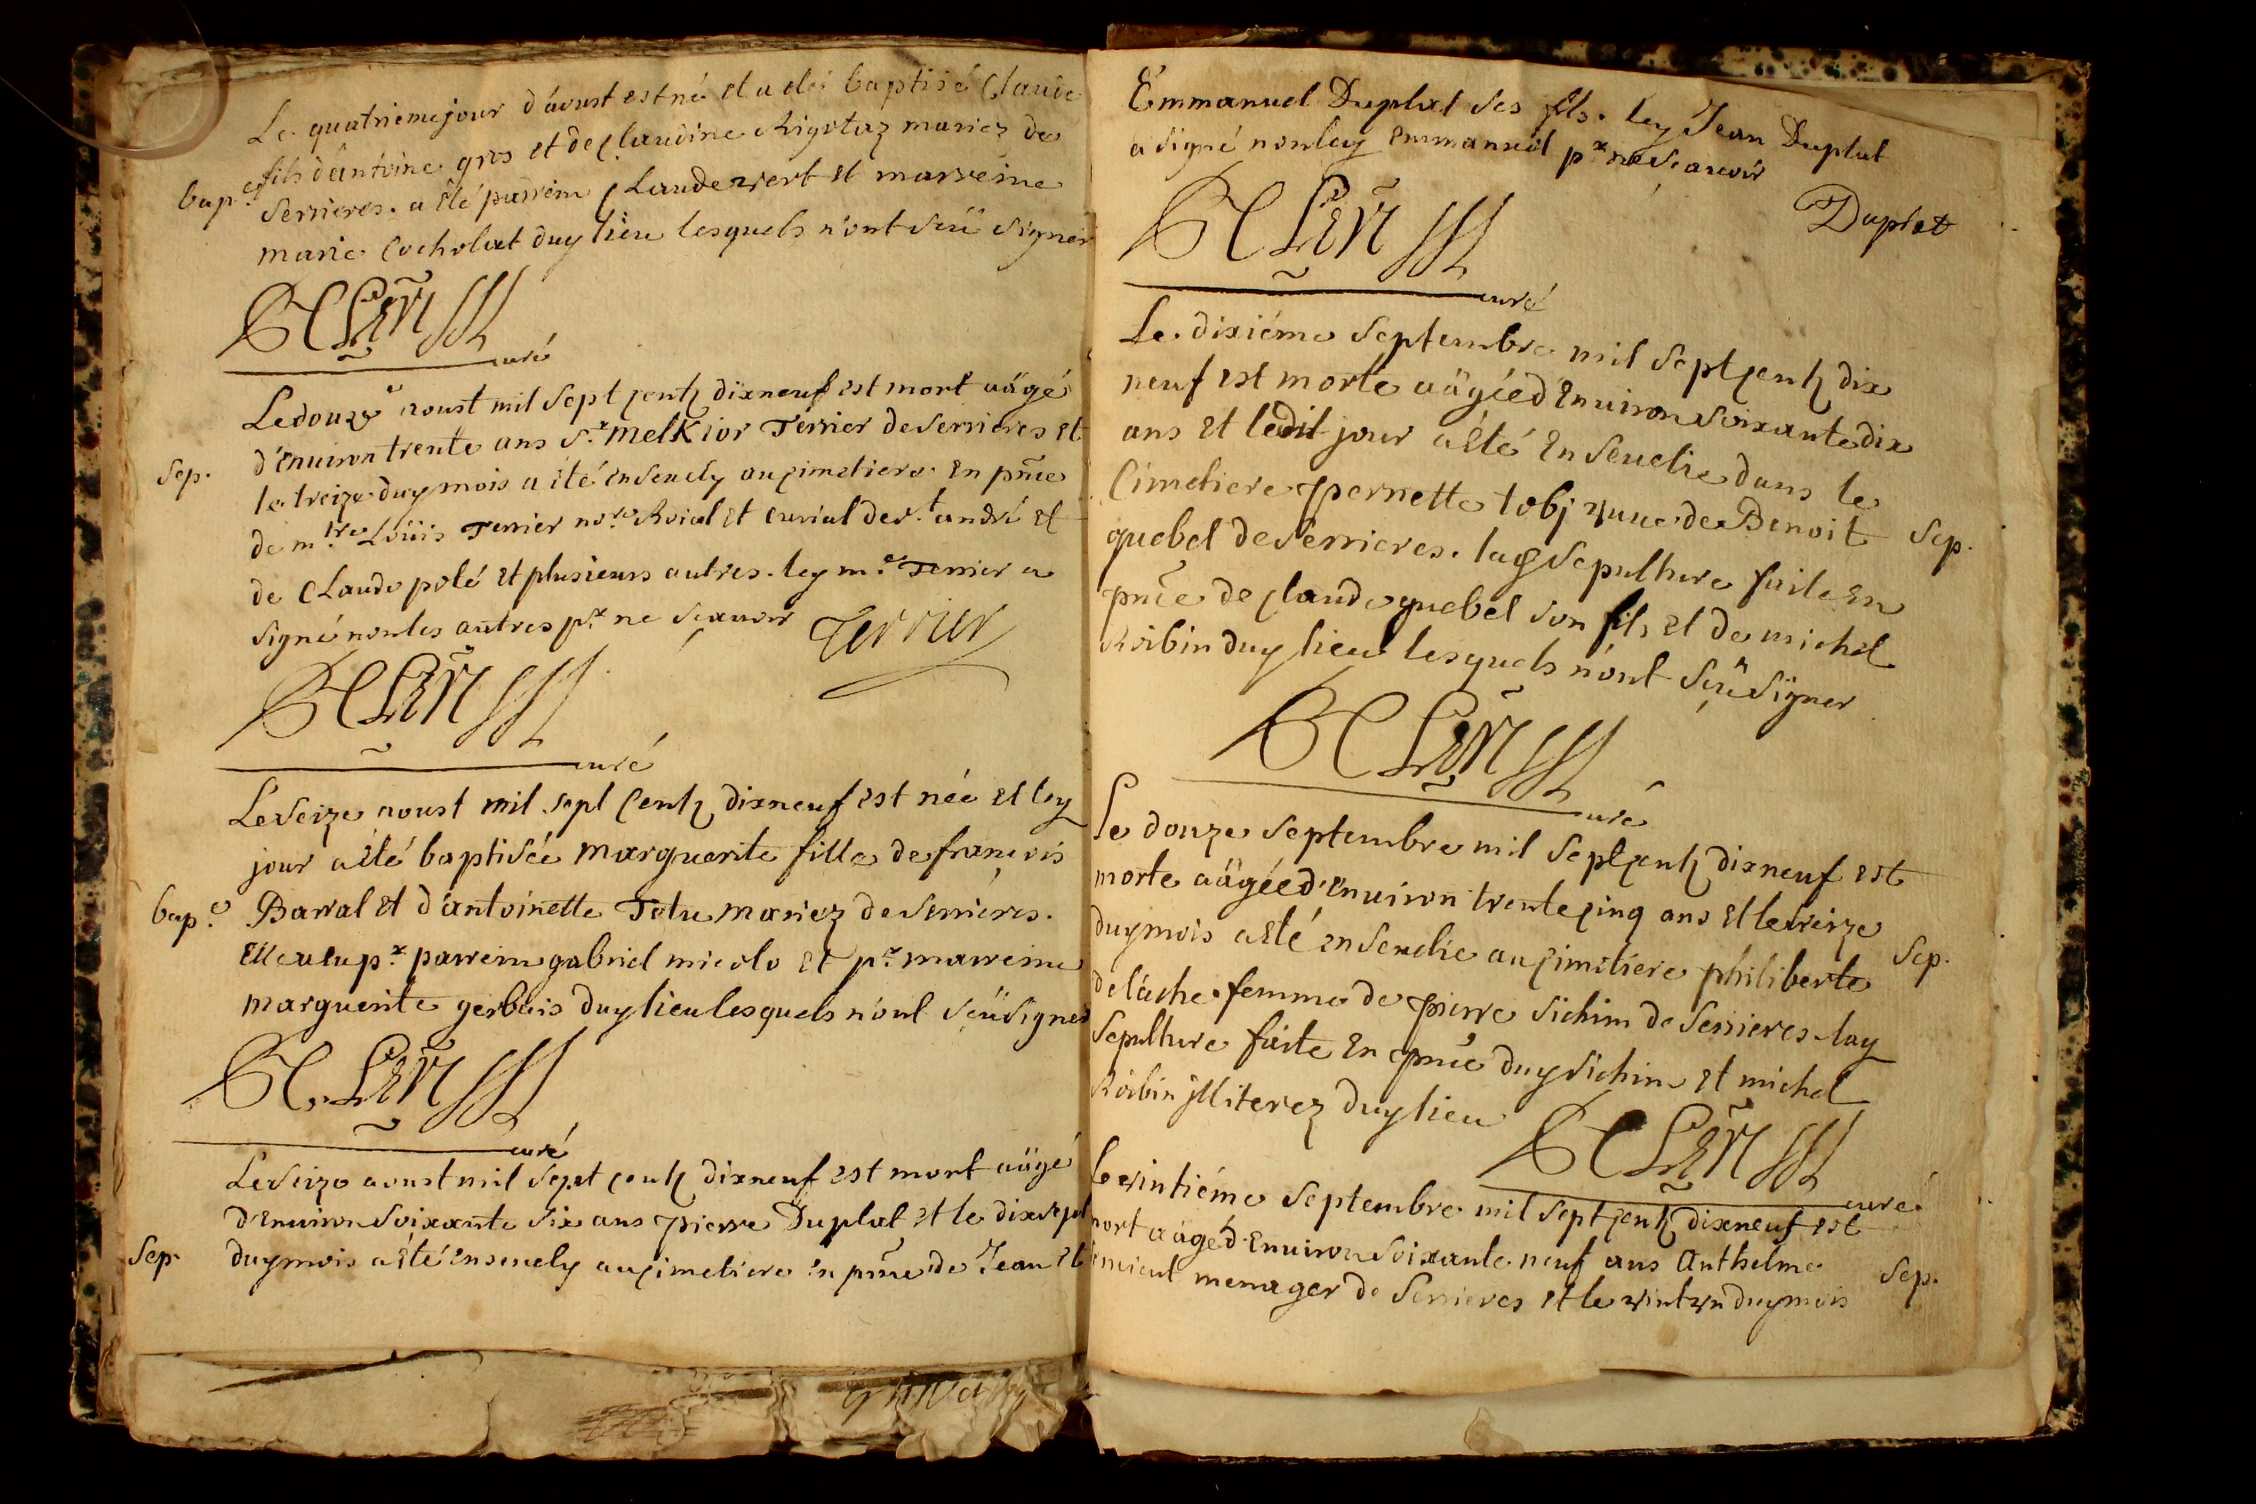 Le quatriéme jour d'avoust est né et a eté baptisé Claude
bap.e fils d'antoine gros et de Claudine Rigotaz mariez de
Serrieres. a été parrein Claude vert et marreine
marie Cocholat duy lieu lesquels n'ont sçeü signer
curé
Le douze aoust mil sept centz dixneuf est mort aägé
d'environ trente ans Sr. Melkior Terrier de Serrieres et
Sep. le treize duy mois a été ensevely au cimetiere en pnce
de mtre Loüis Terrier nore Roial et curial de st. andré et
de Claude polé et plusieurs autres. ley me. Terrier a
signé non les autres pr. ne sçavoir
Terrier
curé
Le seize aoust mil sept centz dixneuf est née et ley
jour a été baptisée Marguerite fille de françois
bap.e Barral et d'antoinette Tetu mariez de Serrieres.
Elle a eu pr. parrein gabriel micolo et pr. marreine
marguerite gerbais duy lieu lesquels n'ont sçeü signer
curé
Le seize aoust mil sept centz dixneuf est mort aägé
d'environ soixante six ans pierre Duplat et le dixsept
Sep. duy mois a été ensevely au cimetiere en pnce de Jean et
Emmanuel Duplat ses fils. ley Jean Duplat
a signé non ley Emmanuel pr. ne sçavoir
Duplat
curé
Le dixiéme Septembre mil sept centz dix
neuf est morte aägée d'environ soixante dix
ans et ledit jour a été ensevelie dans le
Cimetiere pernette tobj veuve de Benoit Sep.
quebel de Serrieres. lay Sepulture faite en
pnce de Claude quebel son fils et de michel
Roibin duy lieu lesquels n'ont sçeü signer
curé
Le douze Septembre mil sept centz dixneuf est
morte aägée d'environ trente cinq ans et le treize
duy mois a été ensevelie au cimetiere philiberte Sep.
delâche femme de pierre Sichim de Serrieres. lay
Sepulture faite en pnce duy Sichim et michel
Roibin jlliterez duy lieu
curé
Le vintiéme Septembre mil sept centz dixneuf est
mort aägé d'environ soixante neuf ans Anthelme
menager de Serrieres et le vint un duy mois Sep.